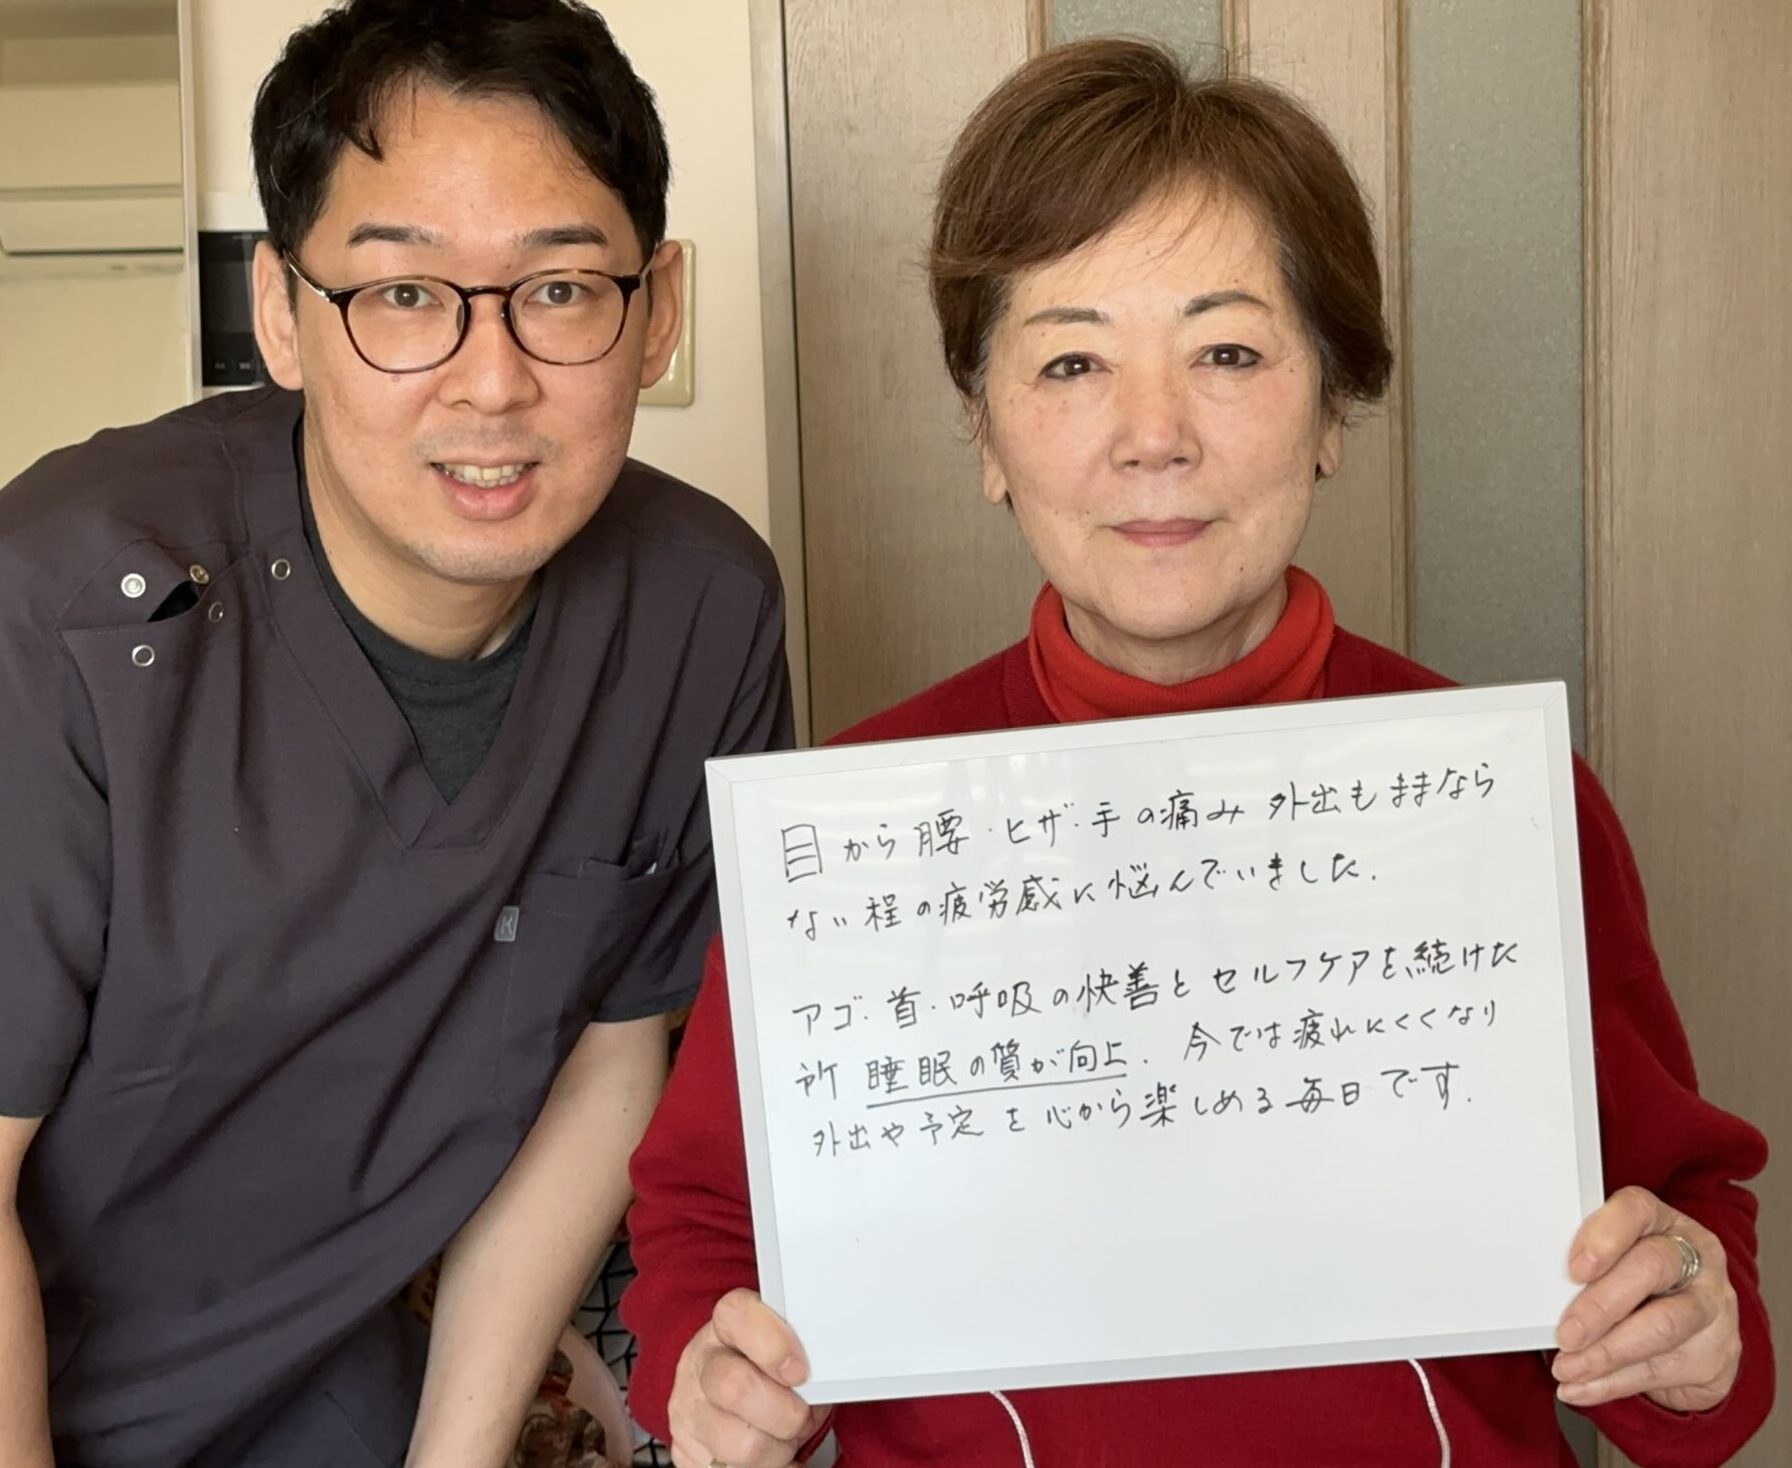 目から腰・ヒザ・手の痛み 外出もままなら
ない程の疲労感に悩んでいました.
アゴ・首・呼吸の快善とセルフケアを続けた
所 睡眠の質が向上. 今では疲れにくくなり
外出や予定を心から楽しめる毎日です.
K